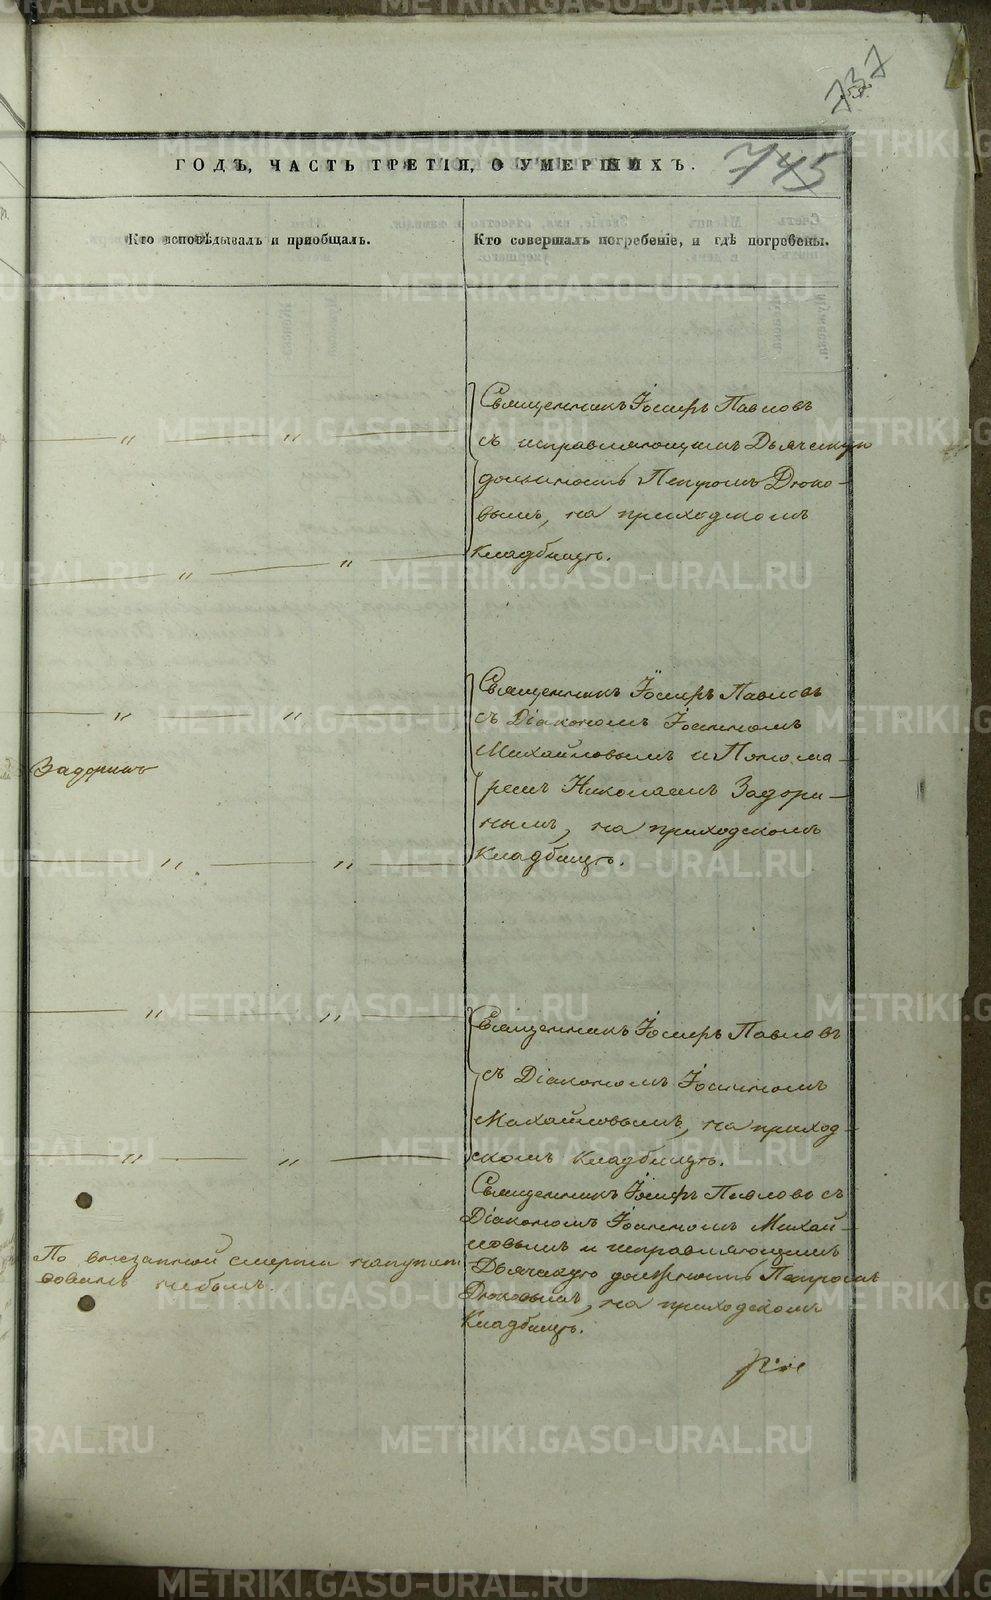 737
745
ГОДЪ, ЧАСТЬ ТРЕТІЯ, О УМЕРШИХЪ.
Кто исповѣдывалъ и пріобщалъ.
Кто совершалъ погребеніе, и гдѣ погребены.
Священникъ Іосифъ Павловъ
съ исправляющимъ Дьяческую
должность Петромъ Дюко-
вымъ, на приходскомъ
кладбищѣ.
Священникъ Іосифъ Павловъ
съ Діакономъ Іоанномъ
Михайловымъ и Понома-
ремъ Николаемъ Задори-
нымъ, на приходскомъ
кладбищѣ.
Задоринъ
Священникъ Іосифъ Павловъ
съ Діакономъ Іоанномъ
Михайловымъ, на приход-
скомъ кладбищѣ.
Священникъ Іосифъ Павловъ съ
Діакономъ Іоанномъ Михай-
ловымъ и исправляющимъ
Дьяческую должность Петромъ
Дюковымъ, на приходскомъ
Кладбищѣ.
По внезапной смерти напутст
вованъ небылъ.
METRIKI.GASO-URAL.RU